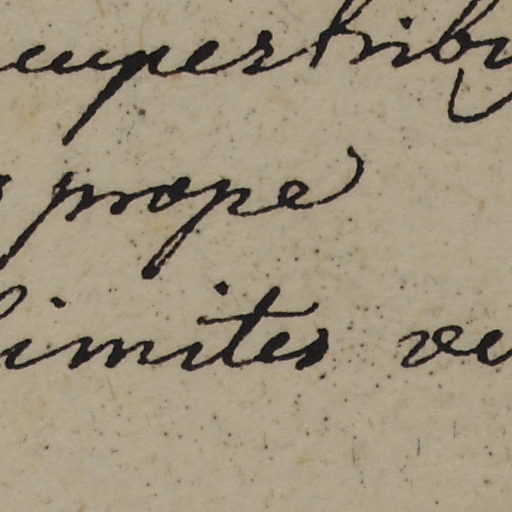 rupestriby
prope
limites ve